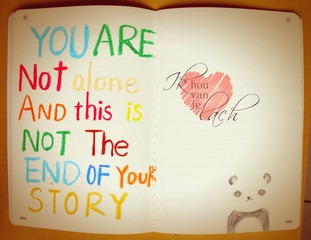 YOU ARE
Not alone
AND this is
NOT The
END OF YOUR
STORY
Ik hou
van
je lach